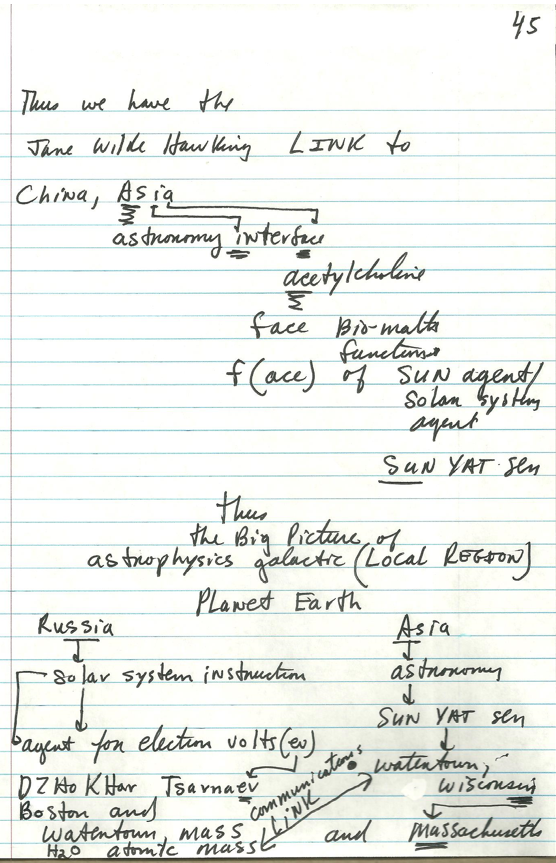 45
Thus we have the
Jane Wilde Hawking LINK to
China, Asia
astronomy interface
acetylcholine
face Bio-math
functions
f(ace) of SUN agent/
Solar system
agent
SUN YAT sen
thus
the Big Picture of
astrophysics galactic (Local REGION)
Planet Earth
Russia
Solar system instruction
agent for electron volts (ev)
DZHOKHar Tsarnaev
Boston and
watertown, mass
H2O atomic mass
communications
LINK
Asia
astronomy
SUN YAT sen
watertown,
wisconsin
and Massachusetts